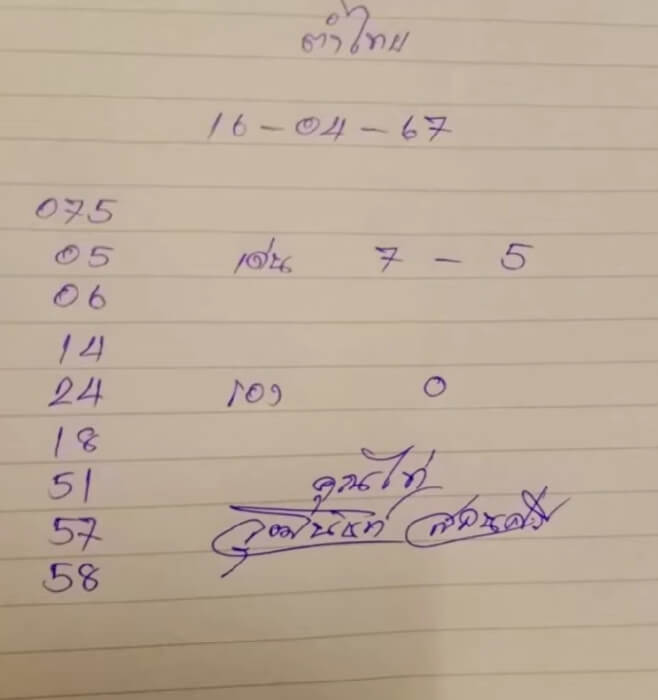 ตำไทย
16-04-67
075
05 เด่น 7 - 5
06
14
24 รอง 0
18
51
57
58